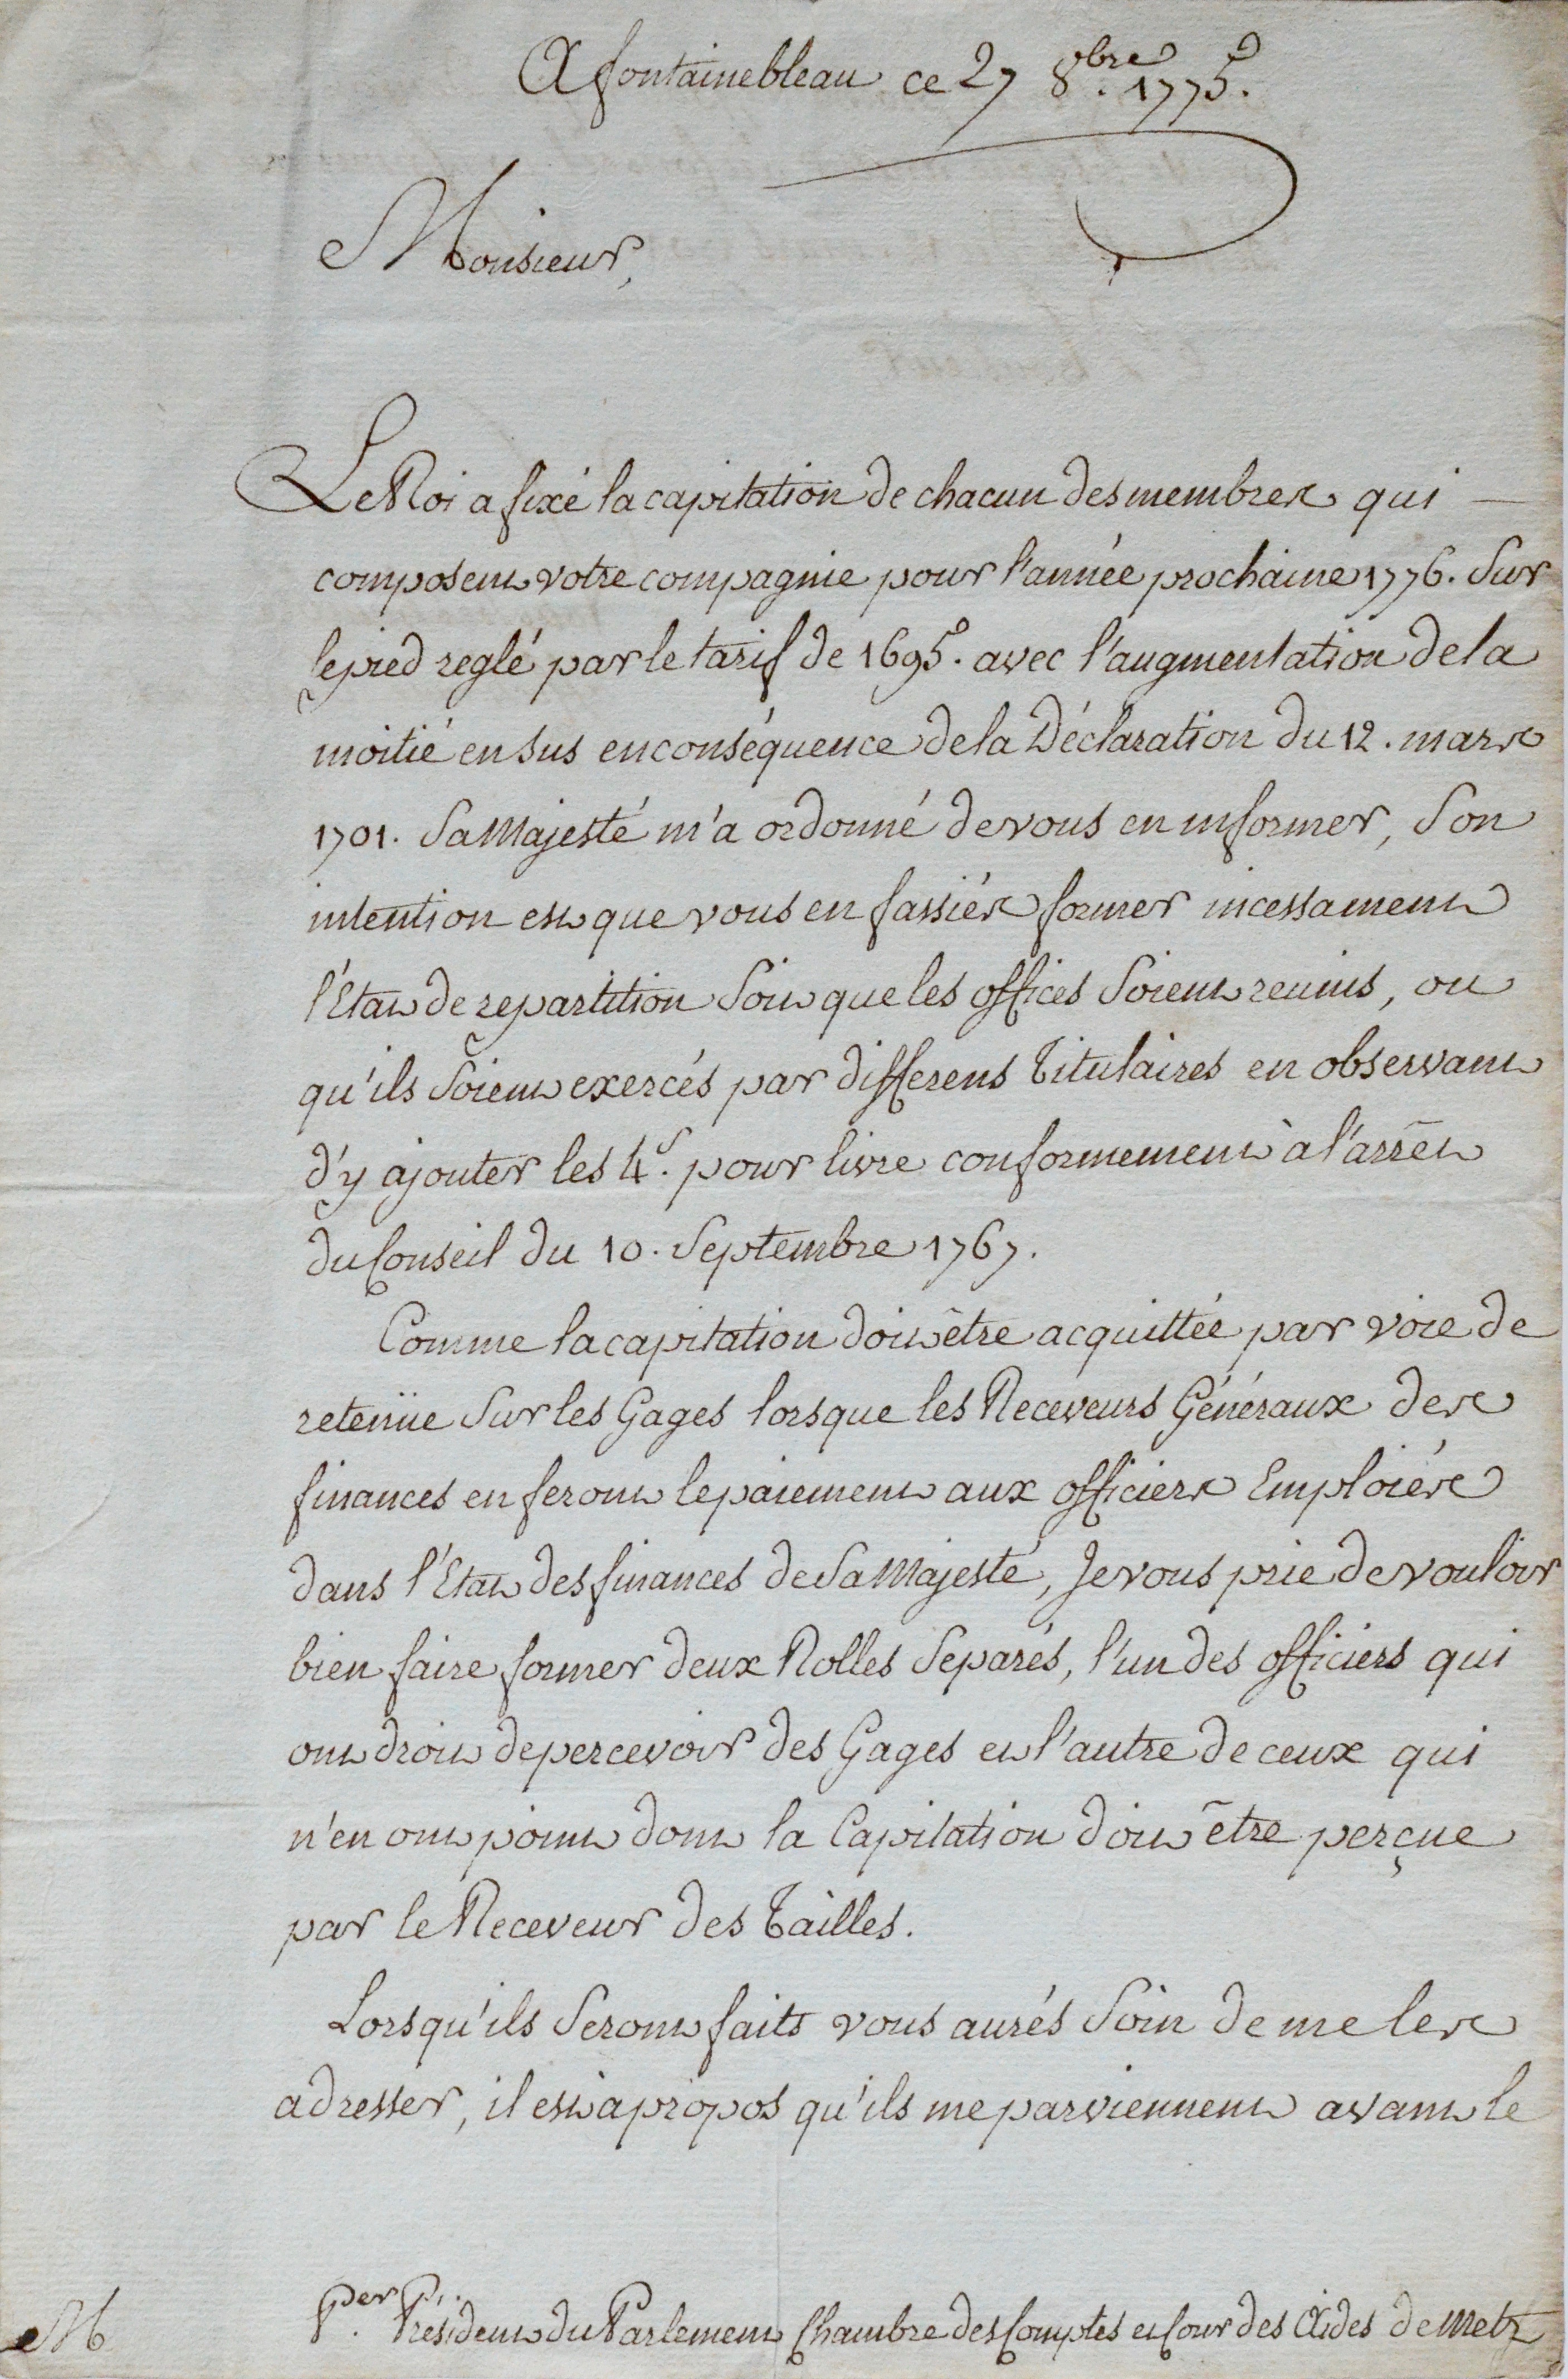 A fontainebleau ce 27 8.bre 1775.
Monsieur,
Le Roi a fixé la capitation de chacun des membres qui
composent votre compagnie pour l'année prochaine 1776. Sur
le pied reglé par le tarif de 1695. avec l'augmentation de la
moitié en sus en conséquence de la Déclaration du 12. mars
1701. Sa Majesté m'a ordonné de vous en informer, Son
intention est que vous en fassiés former incessament
l'Etat de repartition Soit que les offices Soient reunis, ou
qu'ils Soient exercés par differens Titulaires en observant
d'y ajouter les 4.s pour livre conformement à l'arrêt
du Conseil du 10. Septembre 1767.
Comme la capitation doit être acquittée par voie de
retenüe Sur les Gages lorsque les Receveurs Généraux des
finances en feront le paiement aux officiers Emploiés
dans l'Etat des finances de Sa Majesté, Je vous prie de vouloir
bien faire former deux Rolles Separés, l'un des officiers qui
ont droit de percevoir des Gages et l'autre de ceux qui
n'en ont point dont la Capitation doit être perçue
par le Receveur des Tailles.
Lorsqu'ils Seront faits vous aurés Soin de me les
adresser, il est apropos qu'ils me parviennent avant le
M P.er Président du Parlement Chambre des Comptes et Cour des Aides de Metz